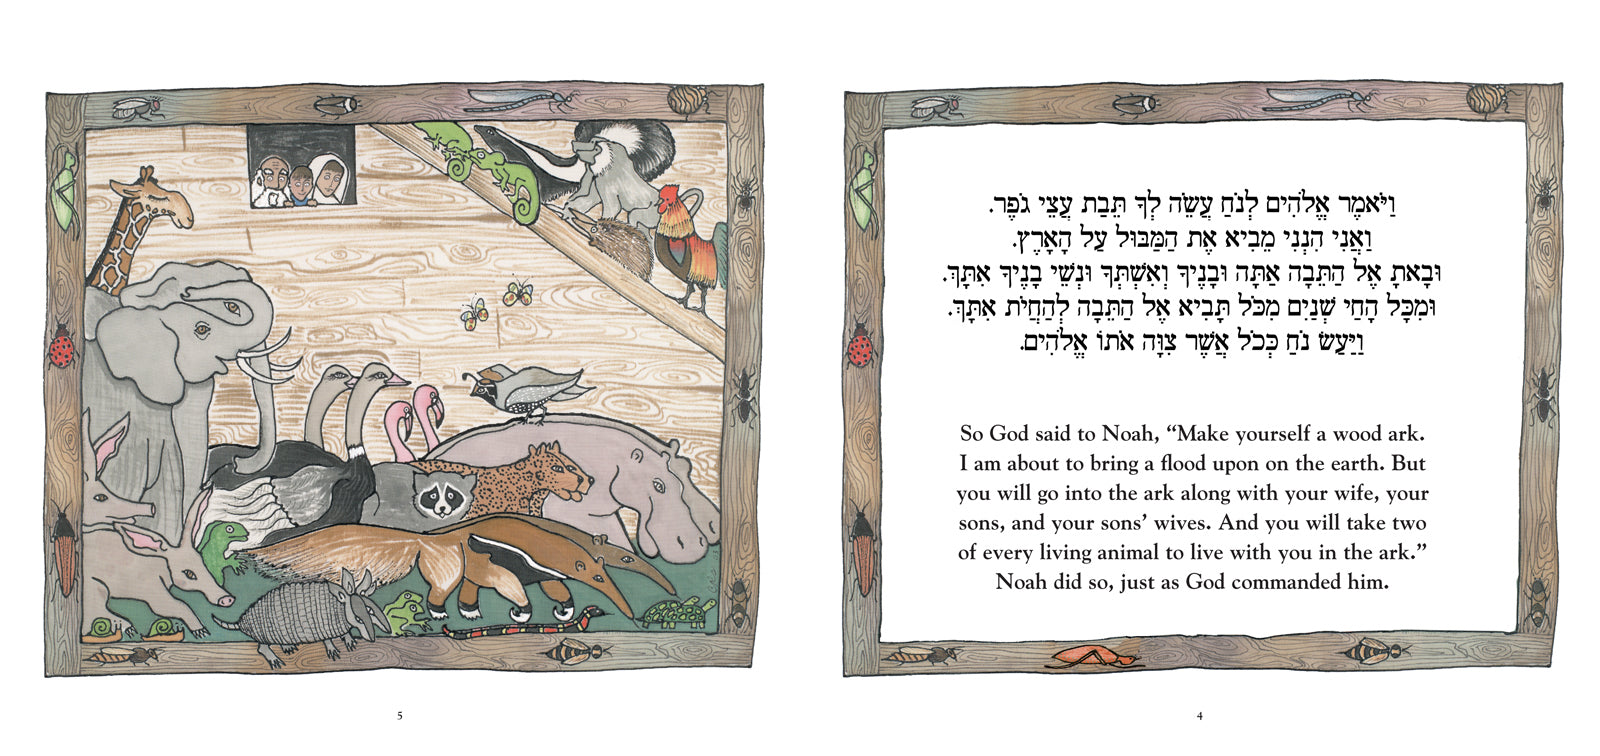 וַיֹּאמֶר אֱלֹהִים לְנֹחַ עֲשֵׂה לְךָ תֵּבַת עֲצֵי גֹפֶר.
וַאֲנִי הִנְנִי מֵבִיא אֶת הַמַּבּוּל עַל הָאָרֶץ.
וּבָאתָ אֶל הַתֵּבָה אַתָּה וּבָנֶיךָ וְאִשְׁתְּךָ וּנְשֵׁי בָנֶיךָ אִתָּךְ.
וּמִכָּל הָחַי שְׁנַיִם מִכֹּל תָּבִיא אֶל הַתֵּבָה לְהַחֲיֹת אִתָּךְ.
וַיַּעַשׂ נֹחַ כְּכֹל אֲשֶׁר צִוָּה אֹתוֹ אֱלֹהִים.
So God said to Noah, “Make yourself a wood ark.
I am about to bring a flood upon on the earth. But
you will go into the ark along with your wife, your
sons, and your sons’ wives. And you will take two
of every living animal to live with you in the ark.”
Noah did so, just as God commanded him.
4
5